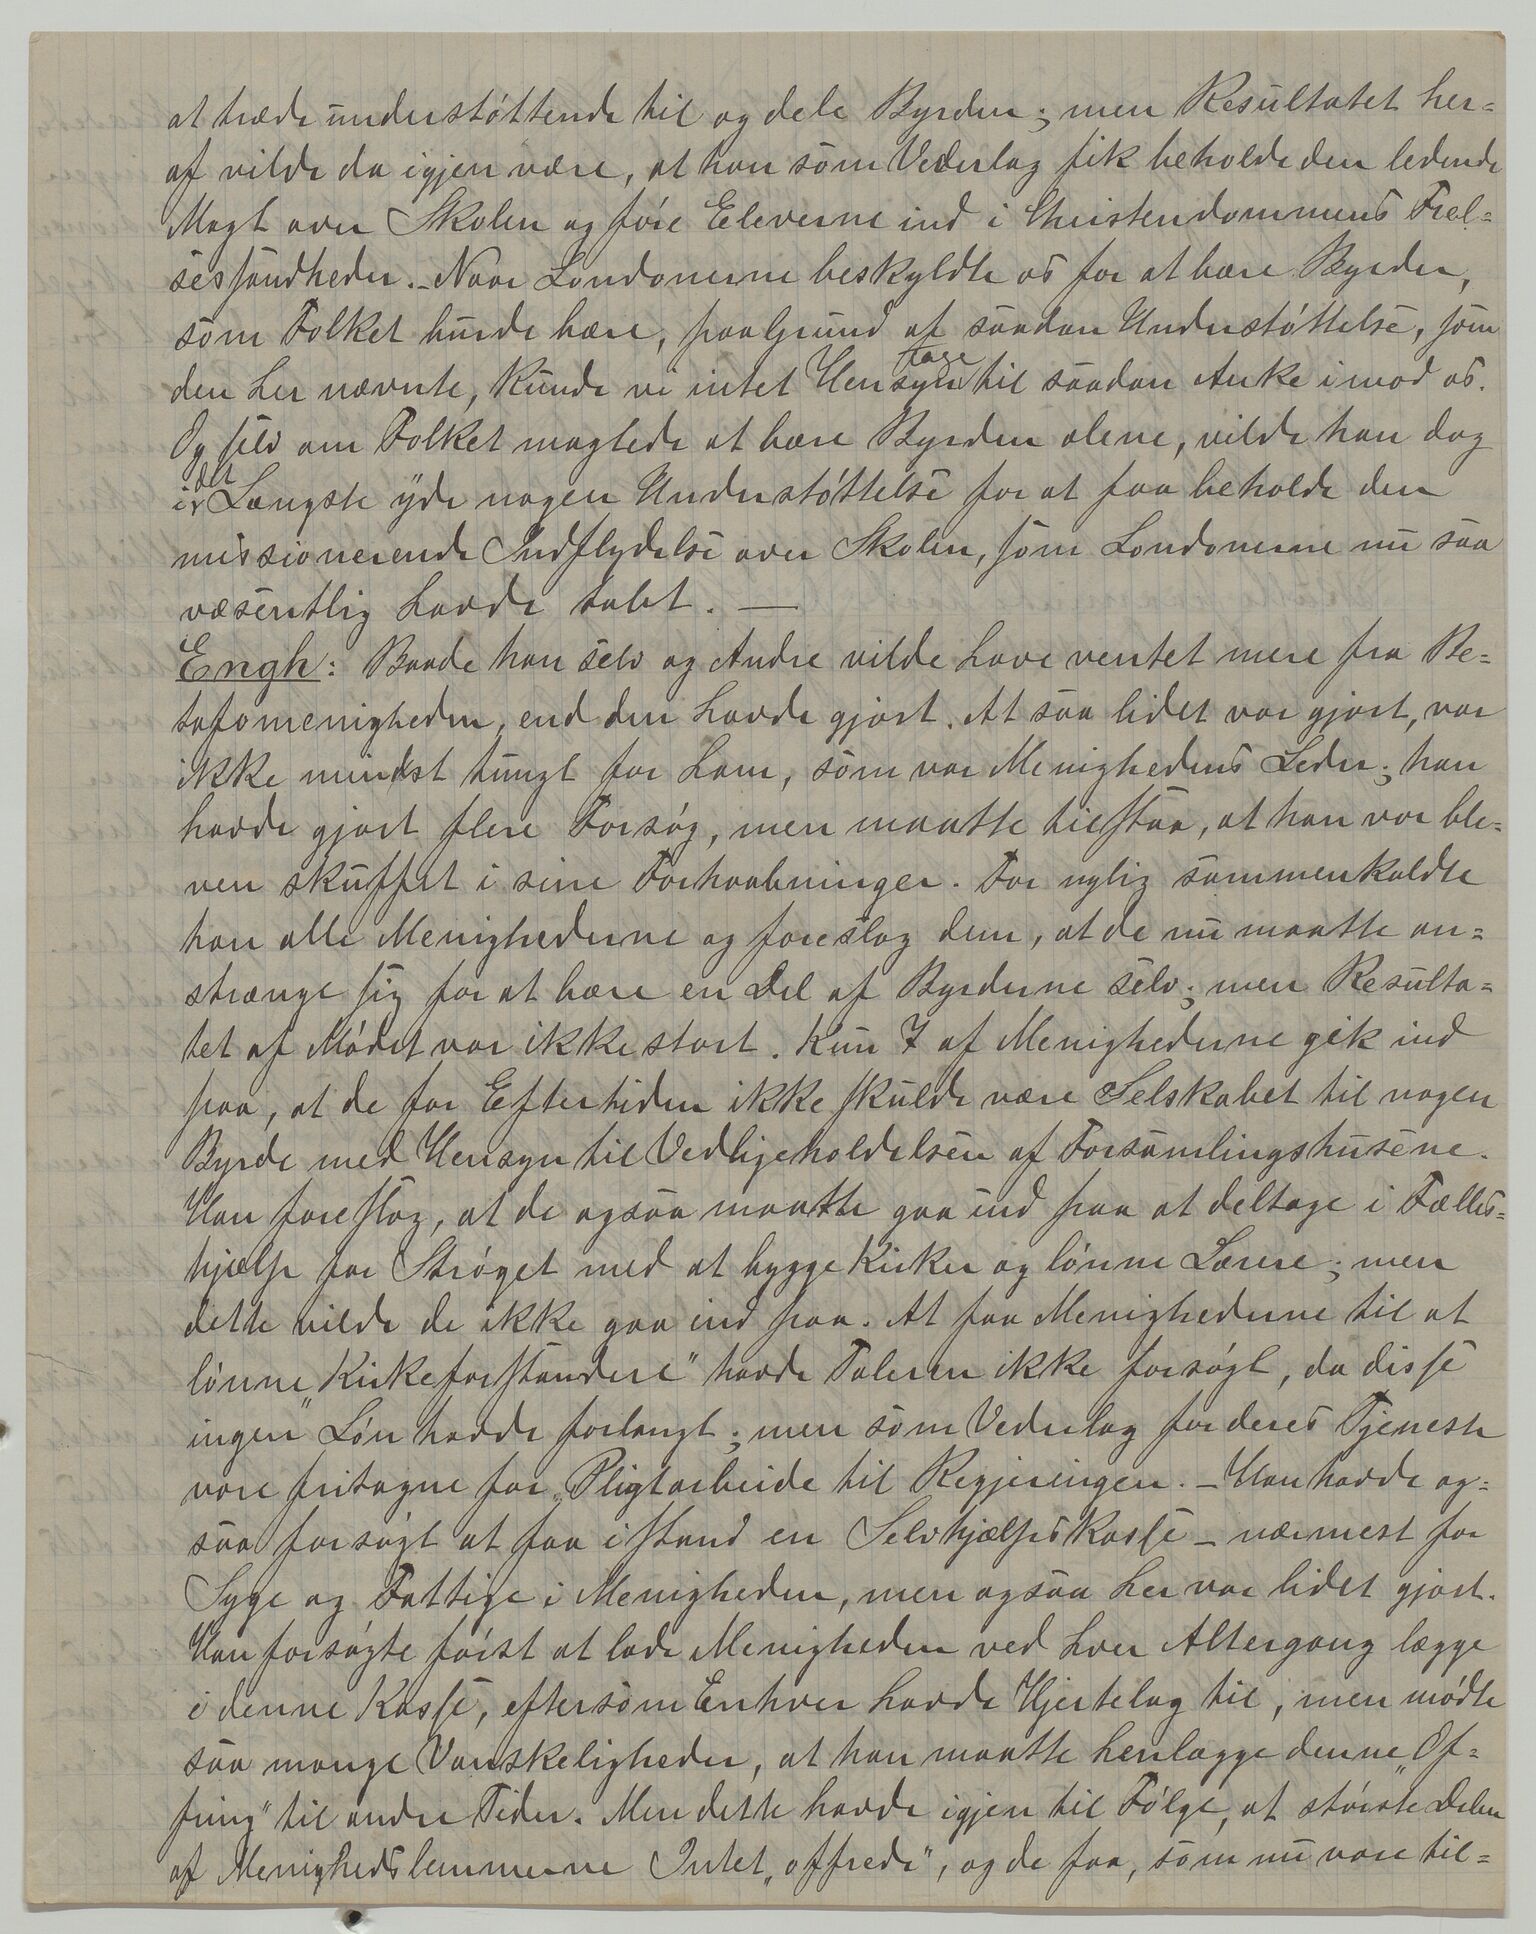 at træde understøttende til og dele Byrden; men Resultatet her=
af vilde da igjen være, at han som Vederlag fik beholde den ledende
Magt over Skolen og føre Eleverne ind i Christendommens Frel=
sessandheder. – Naar Londonerne beskyldte os for at bære Byrder,
som Folket burde bære, paa Grund af saadan Understøttelse, som
den her nævnte, kunde vi intet Hensyn tage til saadan Anke imod os.
Og selv om Folket magtede at bære Byrden alene, vilde han dog
i det Længste yde nogen Understøttelse for at faa beholde den
missionerende Indflydelse over Skolen, som Londonerne nu saa
væsentlig havde tabt. —
Engh: Baade han selv og Andre vilde have ventet mere fra Be=
tafomenigheden, end den havde gjort. At saa lidet var gjort, var
ikke mindst tungt for ham, som var Menighedens Leder; han
havde gjort flere Forsøg, men maatte tilstaa, at han var ble=
ven skuffet i sine Forhaabninger. For nylig sammenkaldte
han alle Menighederne og foreslog dem, at de nu maatte an=
strænge sig for at bære en Del af Byrderne selv; men Resulta=
tet af Mødet var ikke stort. Kun 7 af Menighederne gik ind
paa, at de for Eftertiden ikke skulde være Selskabet til nogen
Byrde med Hensyn til Vedligeholdelsen af Forsamlingshusene.
Han foreslog, at de ogsaa maatte gaa ind paa at deltage i Fælles=
hjælp for Strøget med at bygge Kirker og lønne Lærere; men
dette vilde de ikke gaa ind paa. At faa Menighederne til at
lønne „Kirkeforstandere" havde Taleren ikke forsøgt, da disse
ingen Løn havde forlangt; men som Vederlag for deres Tjeneste
vare fritagne for „Pligtarbeide til Regjeringen. – Han havde og=
saa forsøgt at faa istand en Selvhjælpskasse – nærmest for
Syge og Fattige i Menigheden, men ogsaa her var lidet gjort.
Han forsøgte først at lade Menigheden ved hver Altergang lægge
i denne Kasse, eftersom Enhver havde Hjertelag til, men mødte
saa mange Vanskeligheder, at han maatte henlægge denne „Of=
fring" til andre Tider. Men dette havde igjen til Følge, at største Delen
af Menighedslemmerne Intet „offrede", og de faa, som nu vare til=